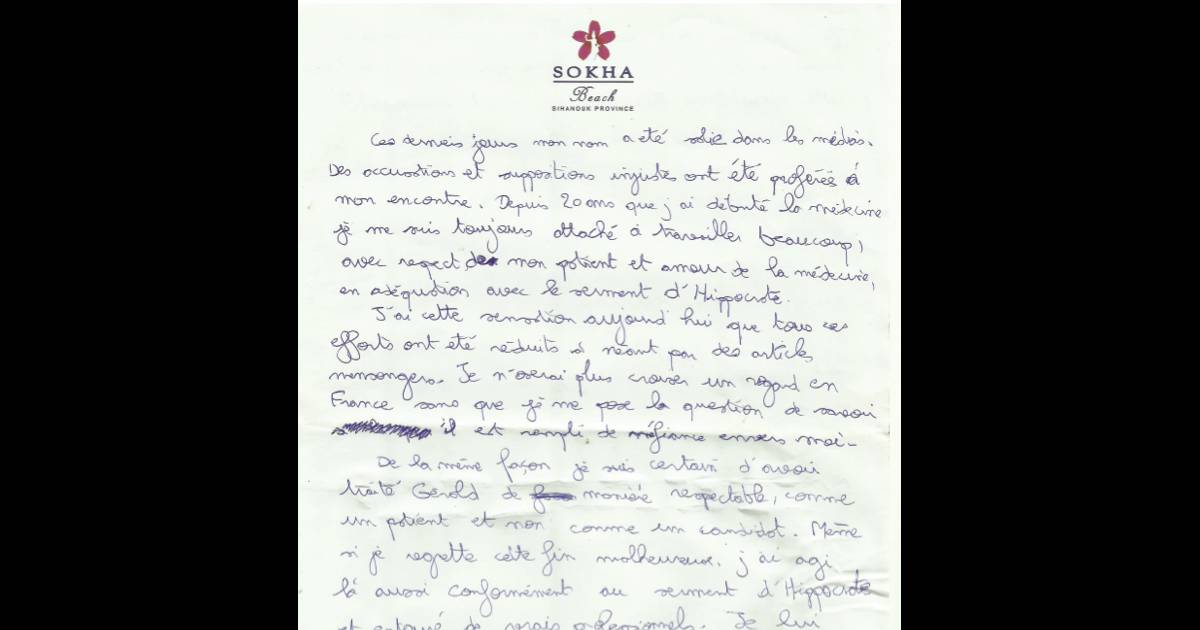 SOKHA
Beach
SIHANOUK PROVINCE
Ces derniers jours mon nom a été salie dans les médias.
Des accusations et suppositions injustes ont été proférées à
mon encontre. Depuis 20 ans que j'ai débuté la médecine
je me suis toujours attaché à travailler beaucoup,
avec respect de mon patient et amour de la médecine,
en adéquation avec le serment d'Hippocrate.
J'ai cette sensation aujourd'hui que tous ces
efforts ont été réduits à néant par des articles
mensongers. Je n'oserai plus croiser un regard en
France sans que je me pose la question de savoir
s'il est rempli de méfiance envers moi.
De la même façon je suis certain d'avoir
traité Gérald de manière respectable, comme
un patient et non comme un candidat. Même
si je regrette cette fin malheureuse, j'ai agi
là aussi conformément au serment d'Hippocrate
et entouré de vrais professionnels. Je lui